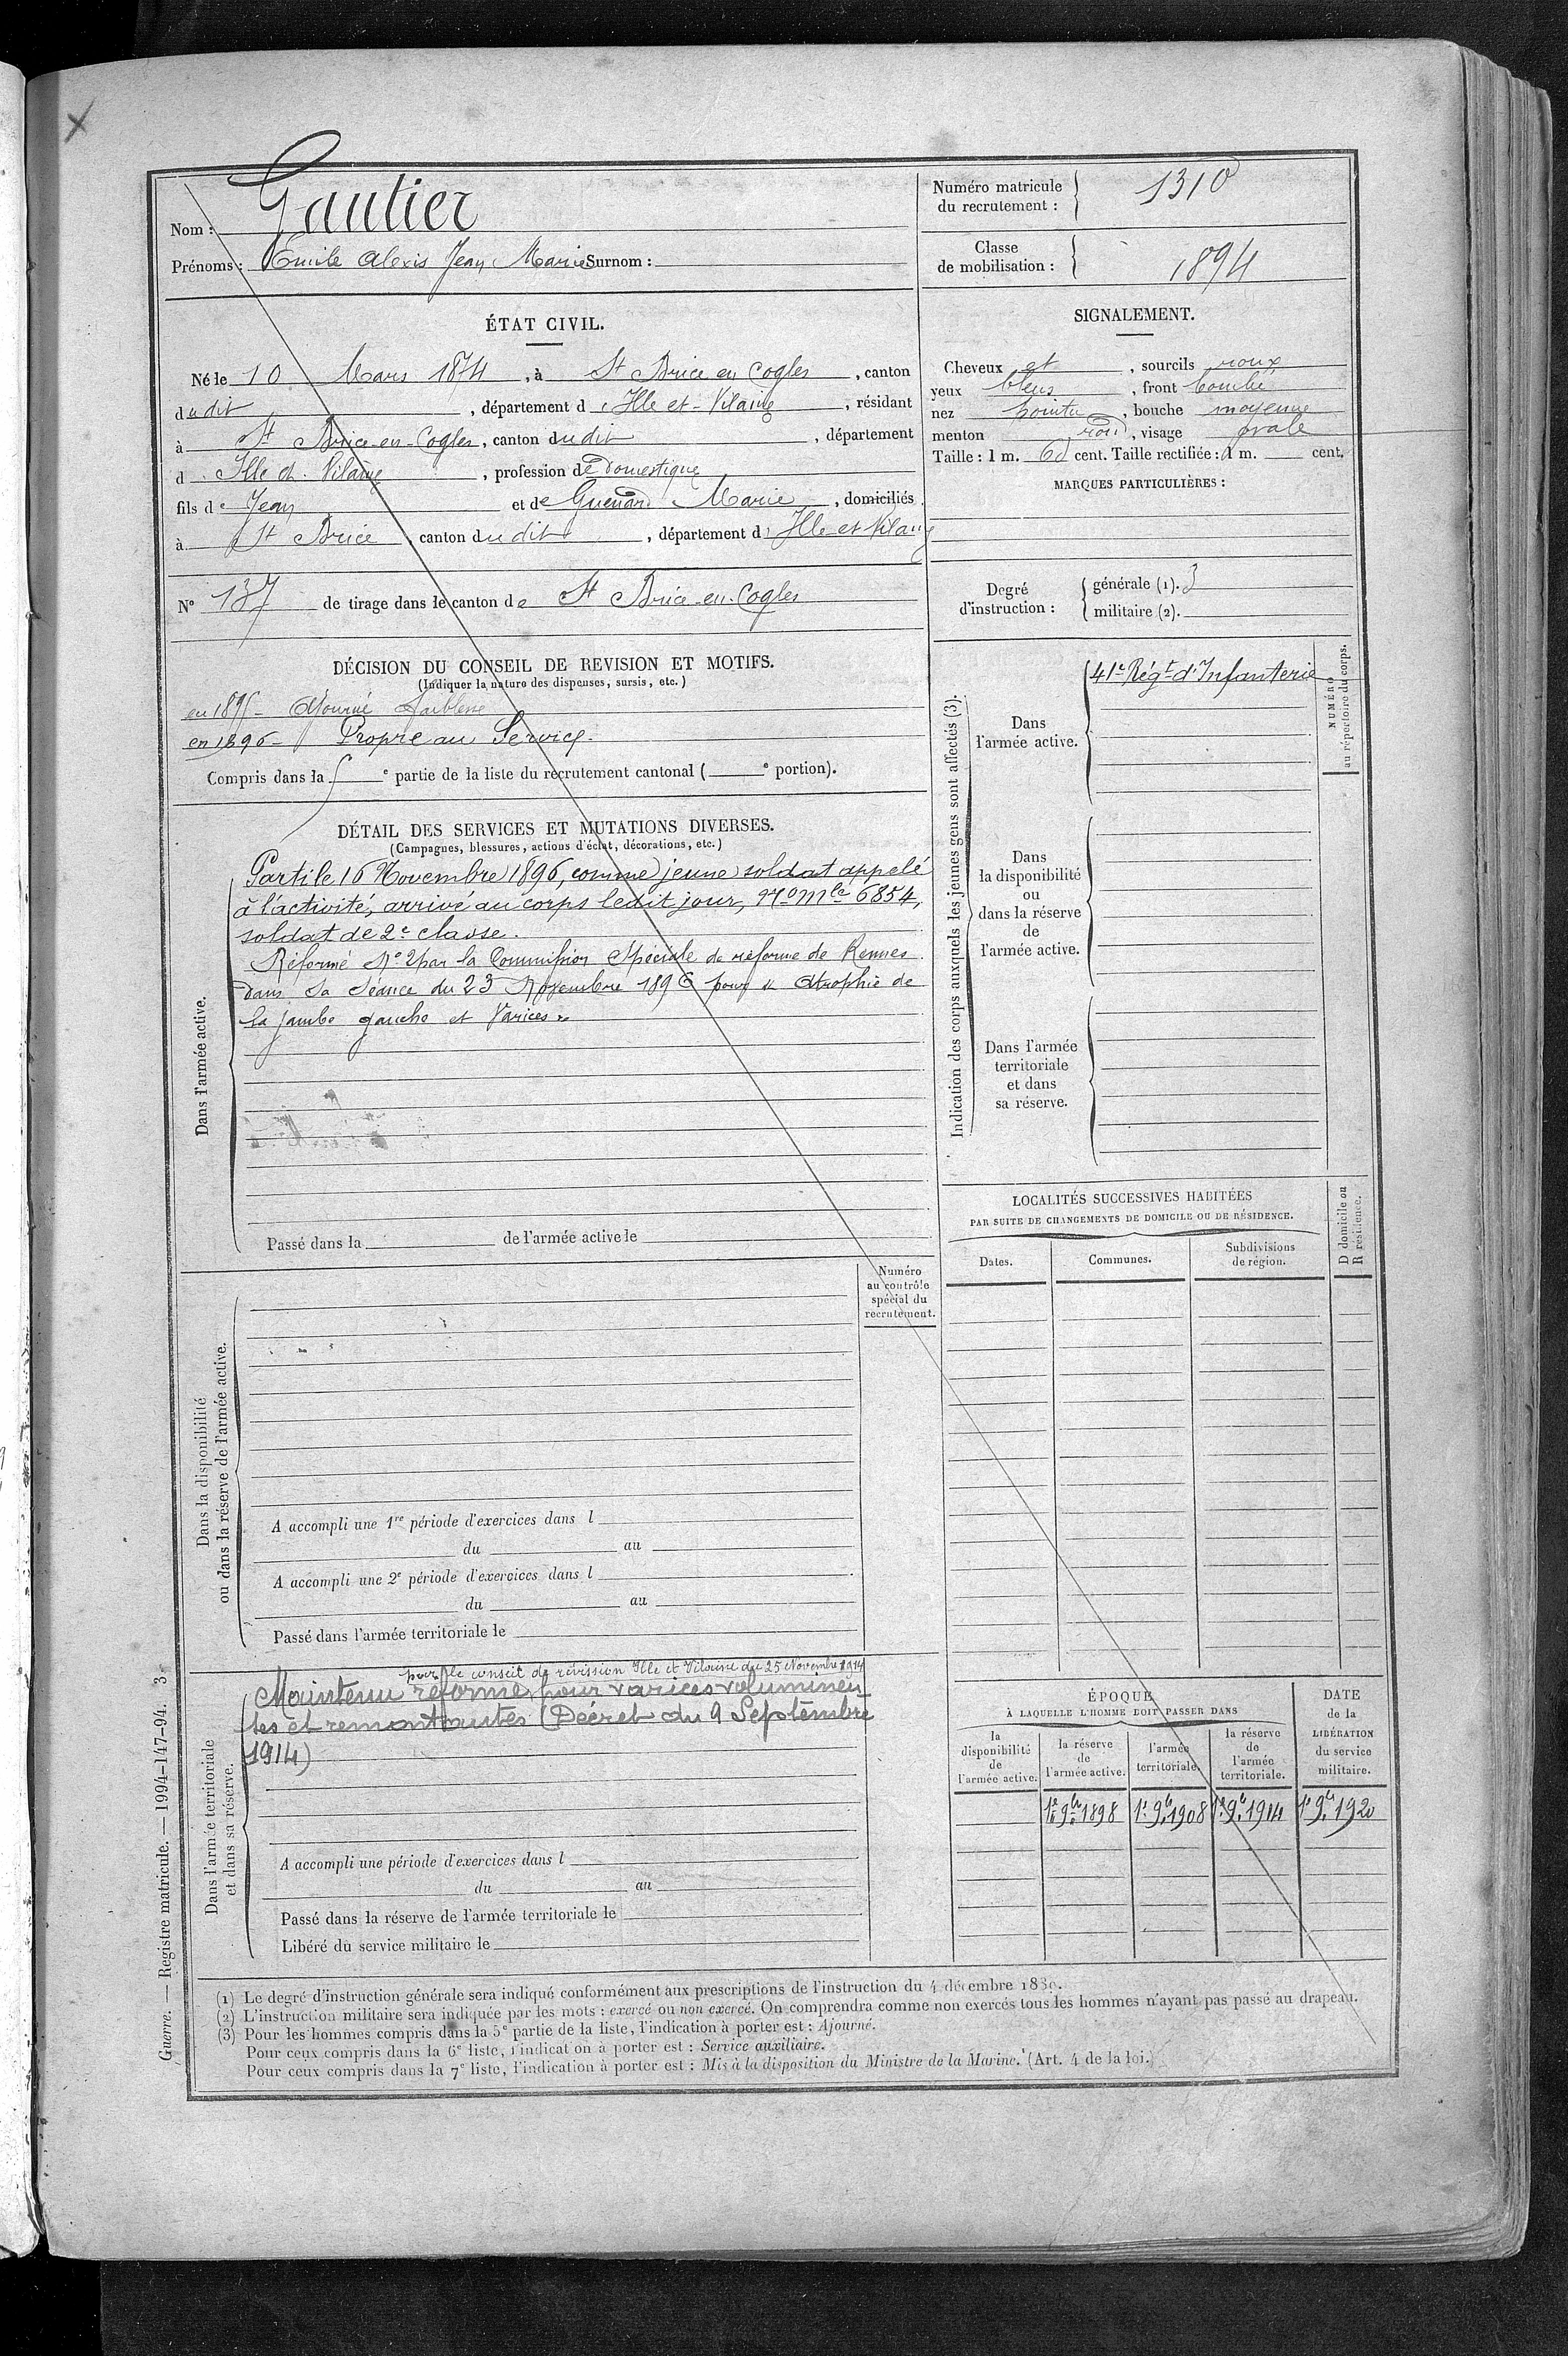 Nom : Gautier
Prénoms : Emile Alexis Jean Marie Surnom :
Numéro matricule
du recrutement : 1310
Classe
de mobilisation : 1894
ÉTAT CIVIL.
Né le 10 Mars 1874, à St Brice en Cogles, canton
dudit, département d'Ille et-Vilaine, résidant
à St Brice-en-Cogles, canton dudit, département
d Ille et Vilaine, profession de Domestique
fils de Jean et de Guenard Marie, domiciliés
à St Brice, canton dudit, département d'Ille-et-Vilaine
N° 137 de tirage dans le canton de St Brice-en-Cogles
SIGNALEMENT.
Cheveux et, sourcils roux
yeux bleus, front bombé
nez pointu, bouche moyenne
menton rond, visage ovale
Taille : 1 m. 60 cent. Taille rectifiée : 1 m. cent.
MARQUES PARTICULIÈRES :
Degré
d'instruction :
générale (1). 3
militaire (2).
DÉCISION DU CONSEIL DE REVISION ET MOTIFS.
(Indiquer la nature des dispenses, sursis, etc.)
en 1895 - Ajourné faiblesse
en 1896 - Propre au Service.
Compris dans la e partie de la liste du recrutement cantonal ( e portion).
DÉTAIL DES SERVICES ET MUTATIONS DIVERSES.
(Campagnes, blessures, actions d'éclat, décorations, etc.)
Dans l'armée active.
Parti le 16 Novembre 1896, comme jeune soldat appelé
à l'activité, arrivé au corps ledit jour, No Mle 6854,
soldat de 2e classe.
Réformé No 2 par la Commission Spéciale de réforme de Rennes
dans sa séance du 23 Novembre 1896 pour « Atrophie de
la jambe gauche et Varices »
Passé dans la de l'armée active le
Indication des corps auxquels les jeunes gens sont affectés (3).
NUMÉRO
au répertoire du corps.
Dans
l'armée active.
41e Régt d'Infanterie
Dans
la disponibilité
ou
dans la réserve
de
l'armée active.
Dans l'armée
territoriale
et dans
sa réserve.
LOCALITÉS SUCCESSIVES HABITÉES
PAR SUITE DE CHANGEMENTS DE DOMICILE OU DE RÉSIDENCE.
Dates.
Communes.
Subdivisions
de région.
D domicile ou
R résidence.
Numéro
au contrôle
spécial du
recrutement.
Dans la disponibilité
ou dans la réserve de l'armée active.
A accompli une 1re période d'exercices dans l
du au
A accompli une 2e période d'exercices dans l
du au
Passé dans l'armée territoriale le
Dans l'armée territoriale
et dans sa réserve.
par le conseil de révision Ille et Vilaine du 25 Novembre 1914
Maintenu réformé, pour varices volumineu
ses et remontantes (Décret du 9 Septembre
1914)
A accompli une période d'exercices dans l
du au
Passé dans la réserve de l'armée territoriale le
Libéré du service militaire le
ÉPOQUE
À LAQUELLE L'HOMME DOIT PASSER DANS
la
disponibilité
de
l'armée active.
la réserve
de
l'armée active.
l'armée
territoriale.
la réserve
de
l'armée
territoriale.
DATE
de la
LIBÉRATION
du service
militaire.
1er 9bre 1898
1er 9bre 1908
1er 9bre 1914
1er 9bre 1920
Guerre. — Registre matricule. — 1994-147-94. 3
(1) Le degré d'instruction générale sera indiqué conformément aux prescriptions de l'instruction du 4 décembre 1889.
(2) L'instruction militaire sera indiquée par les mots : exercé ou non exercé. On comprendra comme non exercés tous les hommes n'ayant pas passé au drapeau.
(3) Pour les hommes compris dans la 5e partie de la liste, l'indication à porter est : Ajourné.
Pour ceux compris dans la 6e liste, l'indication à porter est : Service auxiliaire.
Pour ceux compris dans la 7e liste, l'indication à porter est : Mis à la disposition du Ministre de la Marine. (Art. 4 de la loi.)